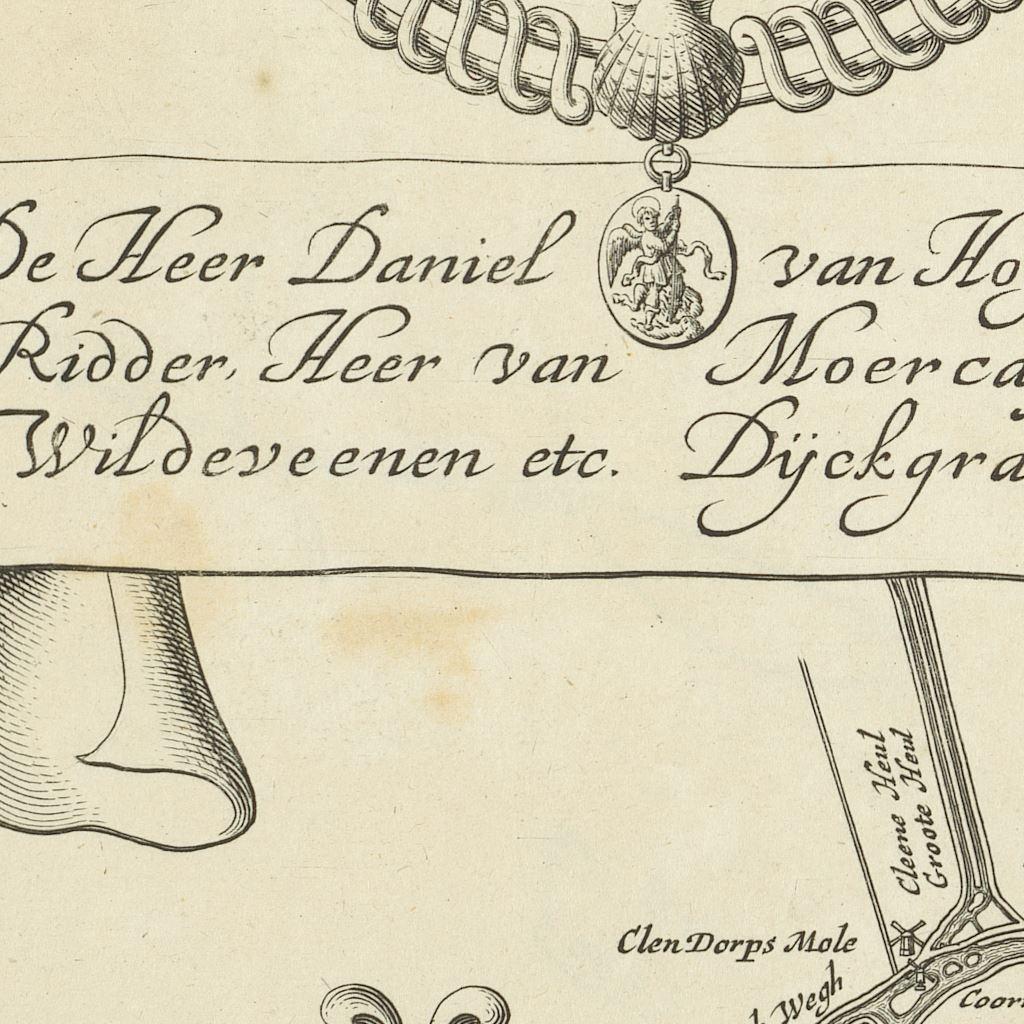 De Heer Daniel van Ho
Ridder, Heer van Moerca
Wildeveenen etc. Dÿckgra
Cleene Heul
Groote Heul
Clen Dorps Mole
Wegh
Coor